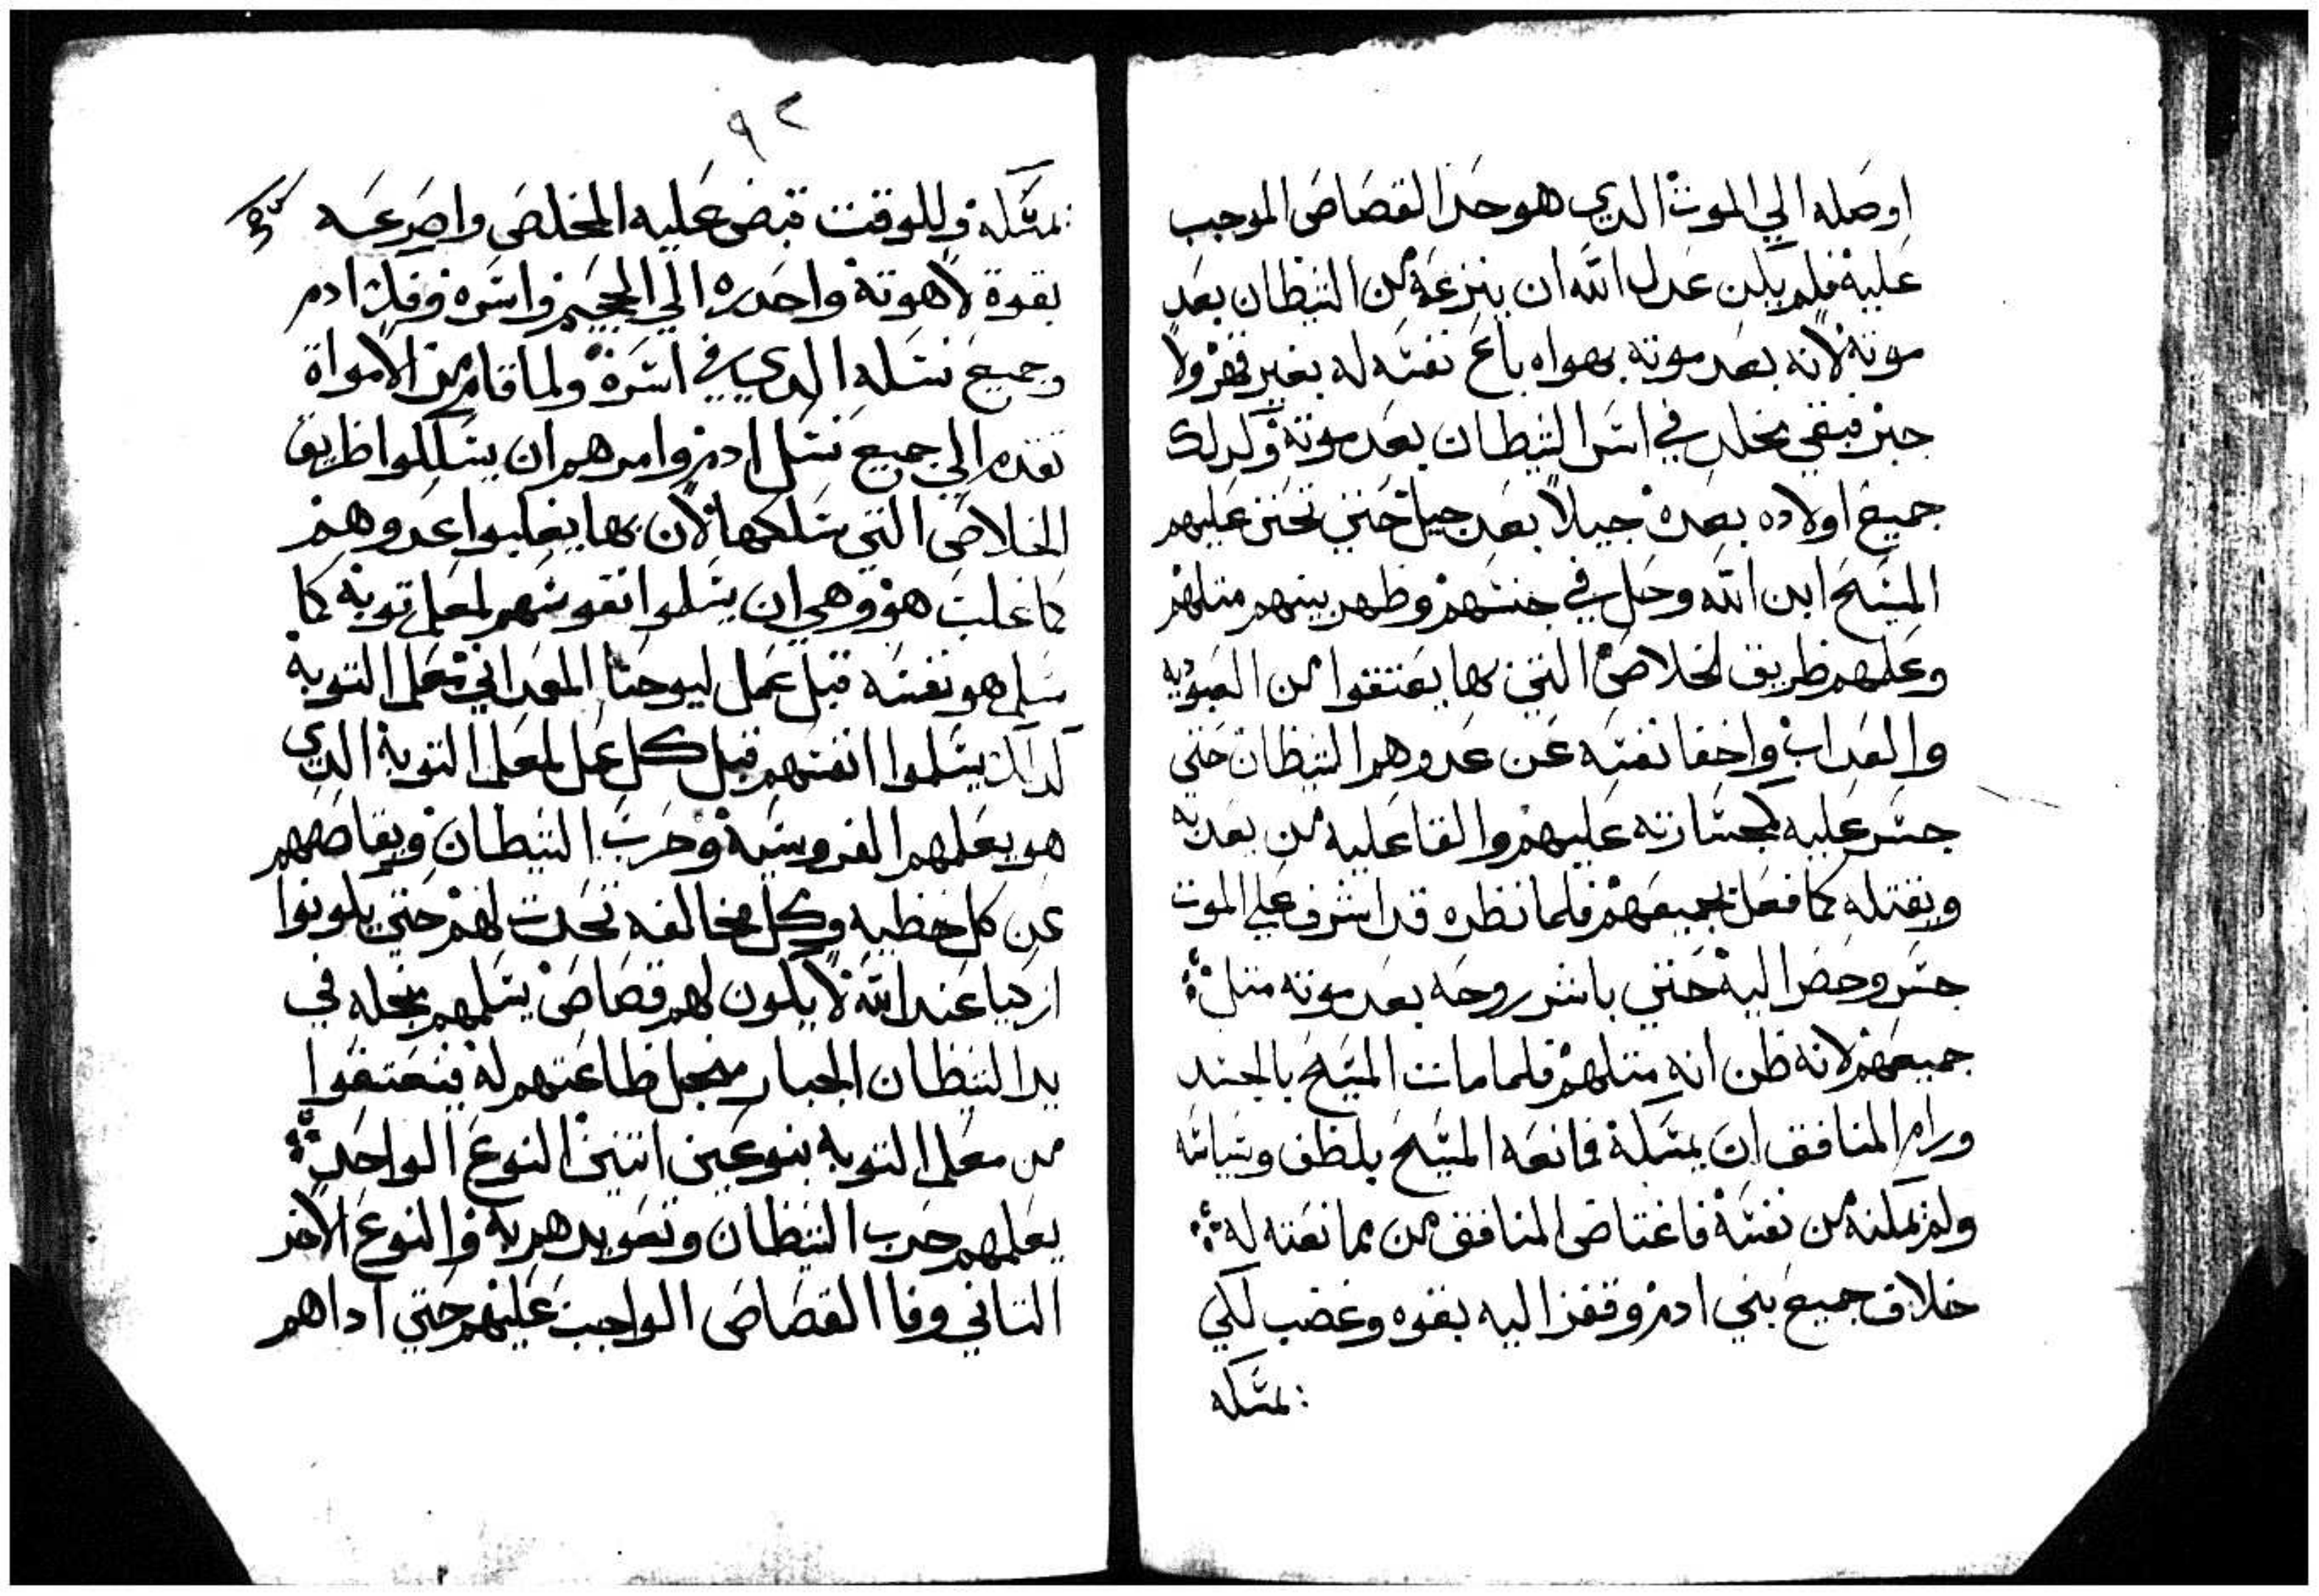 اوصله الي الموت الدي هو حد القصاص الموجب
عليه فلم يكن عدل الله ان ينزعه من الشيطان بعد
موته لانه بعد موته بهواه باع نفسه له بغير قهر ولا
جبر فبقي مخلد في اسر الشيطان بعد موته وكدلك
جميع اولاده بعده جيلاً بعد جيل حتي تحنن عليهم
المسيح ابن الله وحل في جنسهم وظهر بينهم متلهم
وعلمهم طريق الخلاص التي بها يعتقوا من العبوديه
والعداب واخفا نفسه عن عدوهم الشيطان حتي
جسر عليه كجسارته عليهم والقا عليه من بعديه
ويقتله كما فعل بجميعهم فلما نظره قد اشرف علي الموت
جسر وحضر اليه حتي باشر روحه بعد موته متل
جميعهم لانه ظن انه متلهم فلما مات المسيح بالجسد
ورام المنافق ان يمسكه فمانعه المسيح بلطف وسياسه
ولم يمكنه من نفسه فاغتاض المنافق من ممانعته له
خلاف جميع بني ادم وقفز اليه بقوه وغضب لكي
يمسكه
٩٢
يمسكه وللوقت قبض عليه المخلص واصرعه
بقوة لاهوته واحدره الي الجحيم واسره وفك ادم
وجميع نسله الدي في اسره ولما قام من الامواة
تقدم الي جميع نسل ادم وامرهم ان يسلكوا طريق
الخلاص التي سلكها لان بها يغلبوا عدوهم
كما غلب هو وهي ان يسلموا نفوسهم لمعلم توبه كما
سلم هو نفسه قبل عمل ليوحنا المعمداني معلم التوبة
كدلك يسلموا انفسهم قبل كل عمل لمعلم التوبة الدي
هو يعلمهم الفروسية وحرب الشيطان ويقاصصهم
عن كل خطيه وكل مخالفه تحدت لهم حتي يكونوا
ازكيا عند الله لا يكون لهم قصاص يسلمهم بجله في
يد الشيطان الجبار منجل طاعتهم له فينعتقوا
من معلم التوبه بنوعين اتنين النوع الواحد
يعلمهم حرب الشيطان وتعويد هربه والنوع الاخر
التاني وفا القصاص الواجب عليهم حتي اداهم